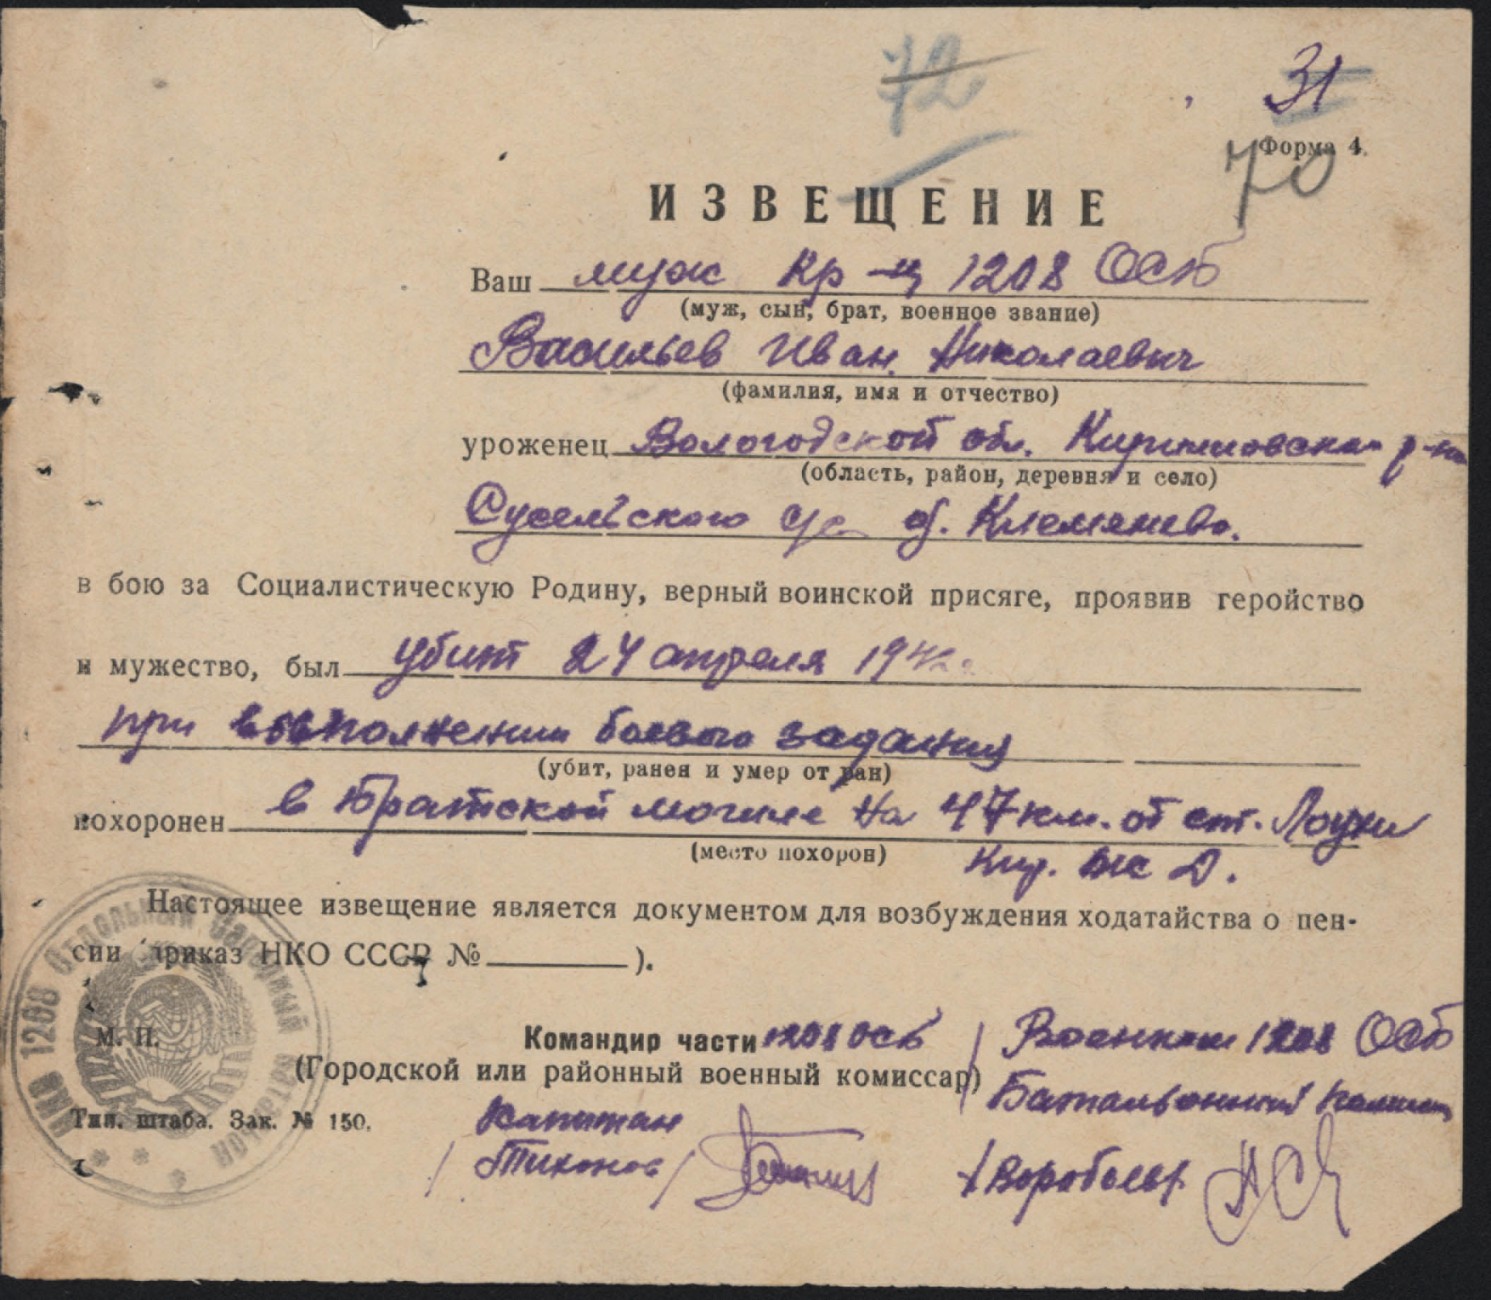 72
31
Форма 4.
70
ИЗВЕЩЕНИЕ
Ваш муж Кр-ц 1208 ОСБ
(муж, сын, брат, военное звание)
Васильев Иван Николаевич
(фамилия, имя и отчество)
уроженец Вологодской обл. р-на
(область, район, деревня и село)
с/с д. Клеменево.
в бою за Социалистическую Родину, верный воинской присяге, проявив геройство
и мужество, был убит 24 апреля 1942г.
при выполнении боевого задания
(убит, ранен и умер от ран)
похоронен в братской могиле на 47 км. от ст. Лоухи
(место похорон) Кир. ж. д.
Настоящее извещение является документом для возбуждения ходатайства о пен-
сии приказ НКО СССР № ).
М. П.
Командир части 1208 ОСБ
(Городской или районный военный комиссар)
Капитан
/Тихонов/
Военком 1208 ОСБ
Батальонный комисс
/Воробьев/
Тип. штаба. Зак. № 150.
НКО 1208 Отдельный Саперный батальон